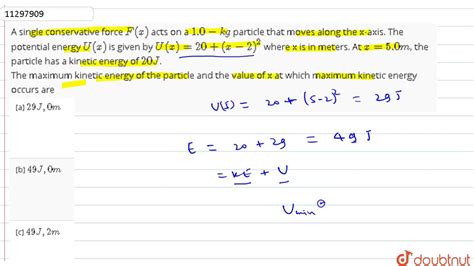 11297909
A single conservative force F(x) acts on a 1.0 − kg particle that moves along the x-axis. The
potential energy U(x) is given by U(x) = 20 + (x − 2)² where x is in meters. At x = 5.0m, the
particle has a kinetic energy of 20J.
The maximum kinetic energy of the particle and the value of x at which maximum kinetic energy
occurs are
U(5) = 20 + (5-2)² = 29 J
[a] 29J, 0m
E = 20 + 29 = 49 J
= KE + U
[b] 49J, 0m
Umin
[c] 49J, 2m
doubtnut